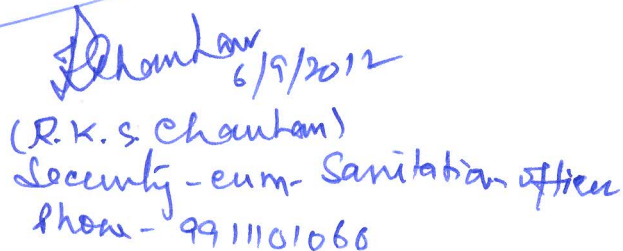 RChauhan
6/9/2012
(R.K.S. Chauhan)
Security-cum-Sanitation officer
Phone - 9911101066